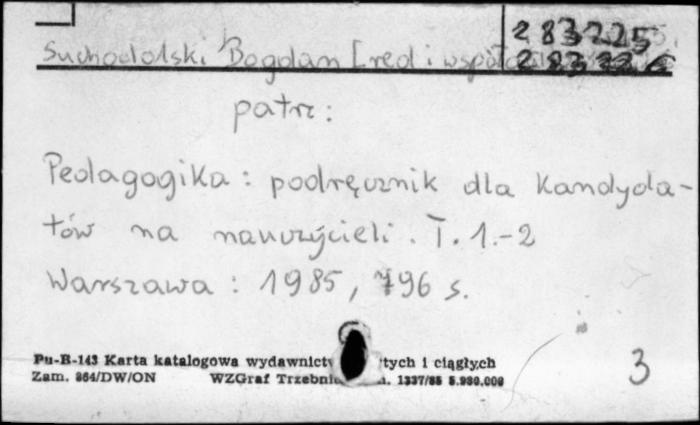 283225
Suchodolski Bogdan [red i współ
patrz:
Pedagogika: podręcznik dla kandyda-
tów na nauczycieli. T. 1.-2
Warszawa: 1985, 796 s.
3
Pu-B-143 Karta katalogowa wydawnictw tych i ciągłych
Zam. 864/DW/ON WZGraf Trzebnica 1337/85 5.930.000